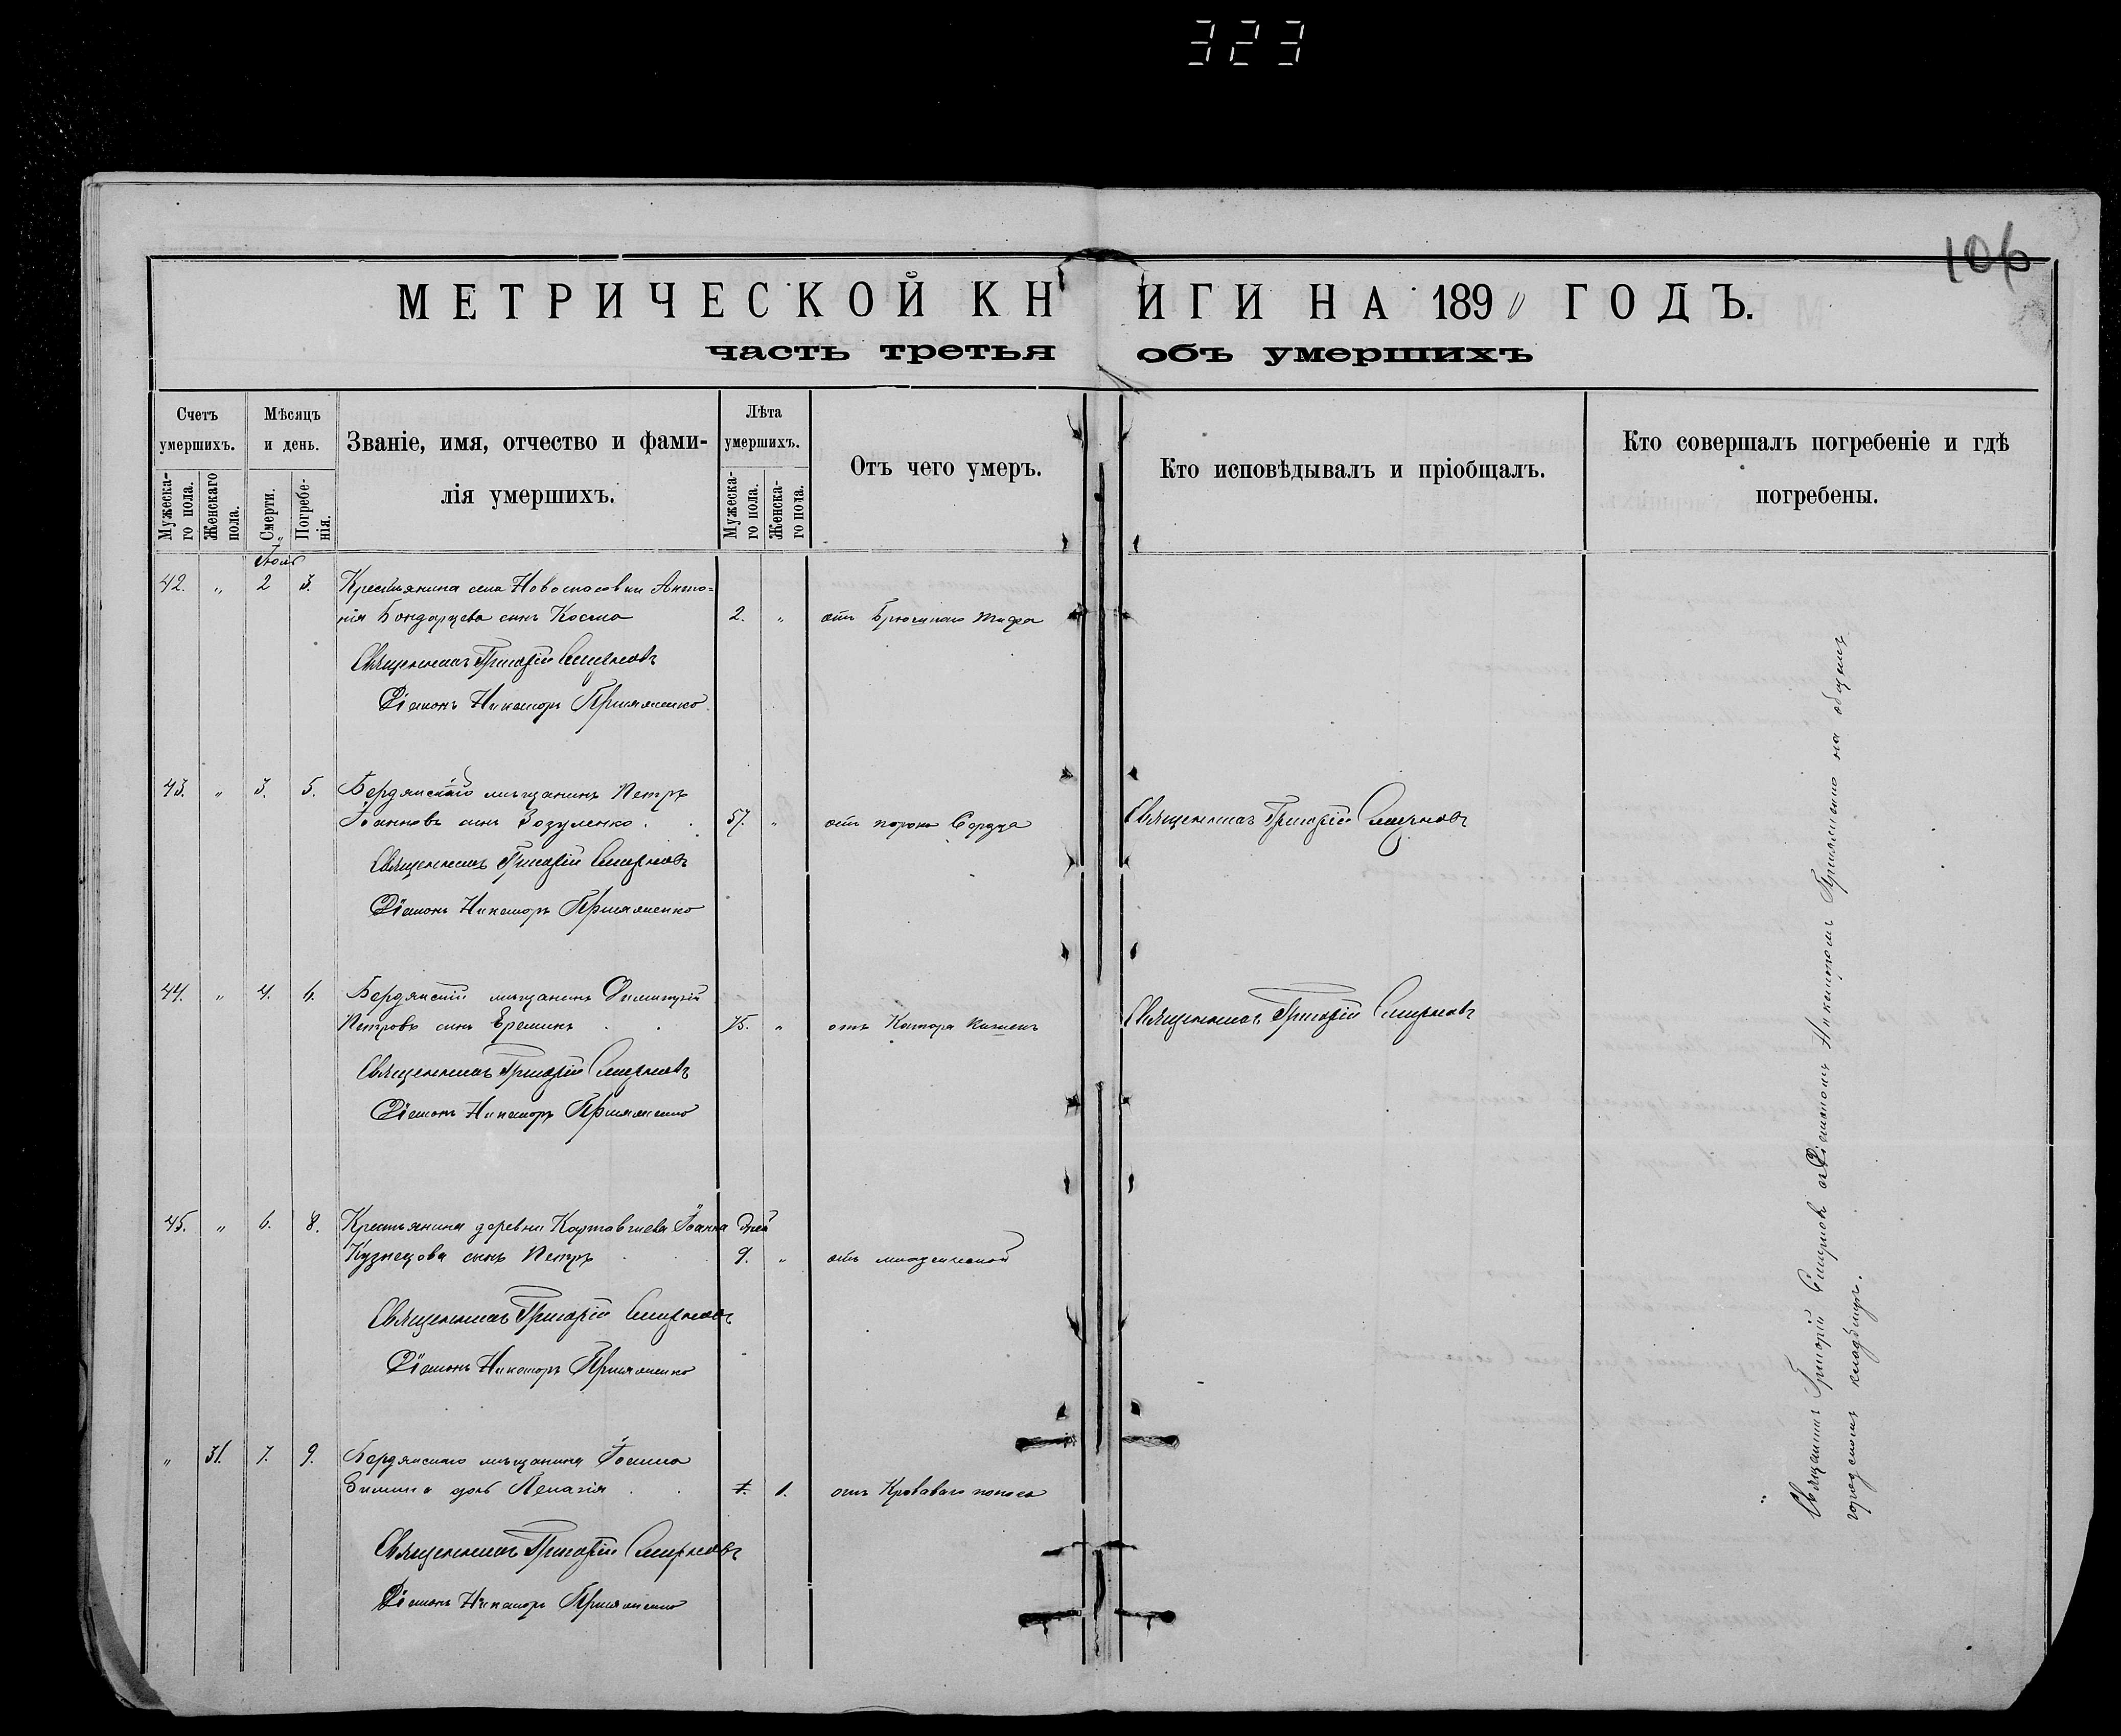 323
106
МЕТРИЧЕСКОЙ КНИГИ НА 1890 ГОДЪ.
часть третья объ умершихъ
Счетъ умершихъ.
Мужескаго пола.
Женскаго пола.
Мѣсяцъ и день.
Смерти.
Погребенія.
Званіе, имя, отчество и фами-
лія умершихъ.
Лѣта умершихъ.
Мужескаго пола.
Женскаго пола.
Отъ чего умеръ.
Кто исповѣдывалъ и пріобщалъ.
Кто совершалъ погребеніе и гдѣ
погребены.
42. „ 2 3. Крестьянина села Новоспасовки Анто=
нія Бондарцева сынъ Косма 2. „ отъ Брюшнаго тифа
Священникъ Григорій Смирновъ
Діаконъ Никаноръ
43. „ 3. 5. мѣщанинъ Петръ
Іоанновъ сынъ Зозуленко. 57. „ отъ порока Сердца Священникъ Григорій Смирновъ
Священникъ Григорій Смирновъ
Діаконъ Никаноръ
44. „ 4. 6. Бердянскій мѣщанинъ Димитрій
Петровъ сынъ Ереминъ 75. „ отъ Катара Кишекъ Священникъ Григорій Смирновъ
Священникъ Григорій Смирновъ
Діаконъ Никаноръ
45. „ 6. 8. Крестьянина деревни Іоанна Дней
Кузнецова сынъ Петръ 9. „ отъ младенческой
Священникъ Григорій Смирновъ
Діаконъ Никаноръ
„ 31. 7. 9. Бердянскаго мѣщанина
дочь Пелагія 1. отъ Кроваваго поноса
Священникъ Григорій Смирновъ
Діаконъ Никаноръ
Священникъ Григорій Смирновъ съ Діакономъ Никаноромъ на общемъ
городскомъ кладбищѣ.